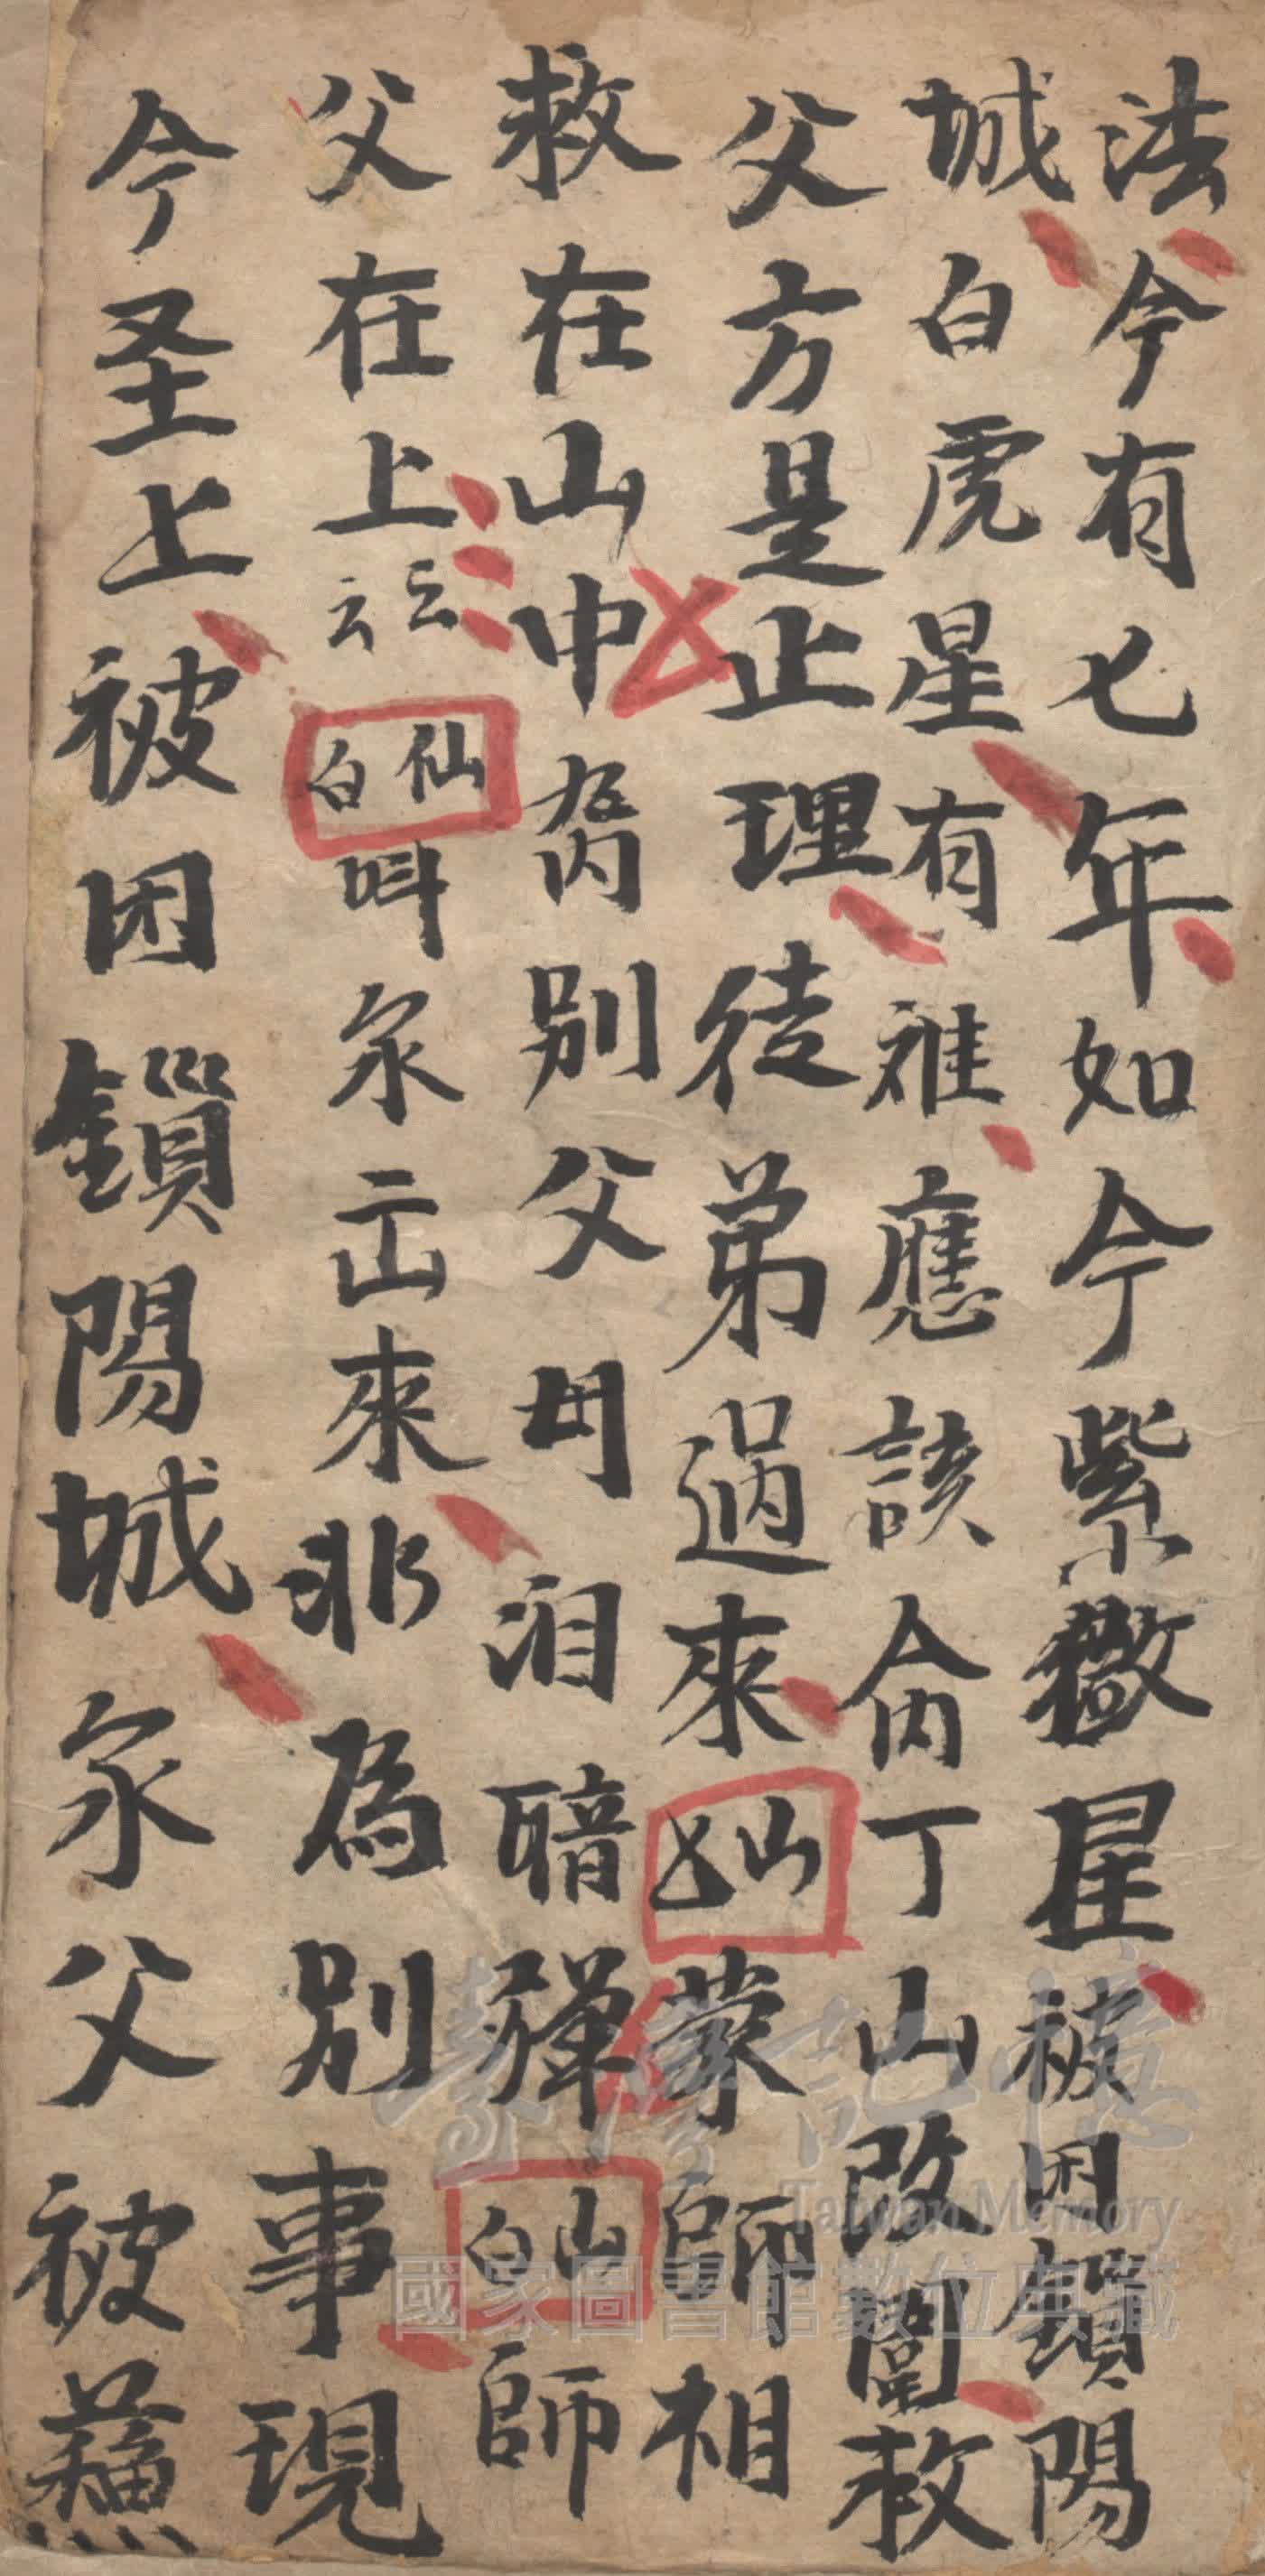 法今有七年如今紫微星被困鎖陽
城白虎星有难應該命丁山改圍救
父方是正理徒弟過來山上蒙師相
救在山中胸別父母泪暗弹山白師
父在上云云仙白叫汆出來非為別事現
今圣上被困鎖陽城汆父被蘓
臺灣記憶
Taiwan Memory
國家圖書館數位典藏